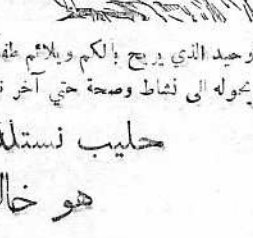 وحيد الذي يريح بالكم ويلائم
يحوله الى نشاط وصحة حتى آخر
حليب نستله
هو